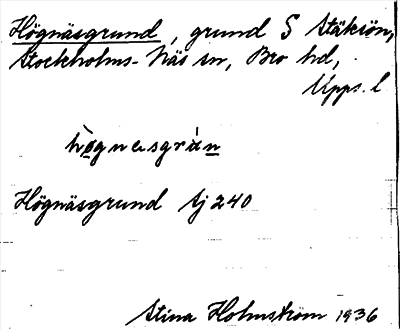 Högnäsgrund, grund S Stäksön,
Stockholms-Näs sn, Bro hd,
Upps. l
Högnäsgrund Sj 240
Stina Holmström 1936